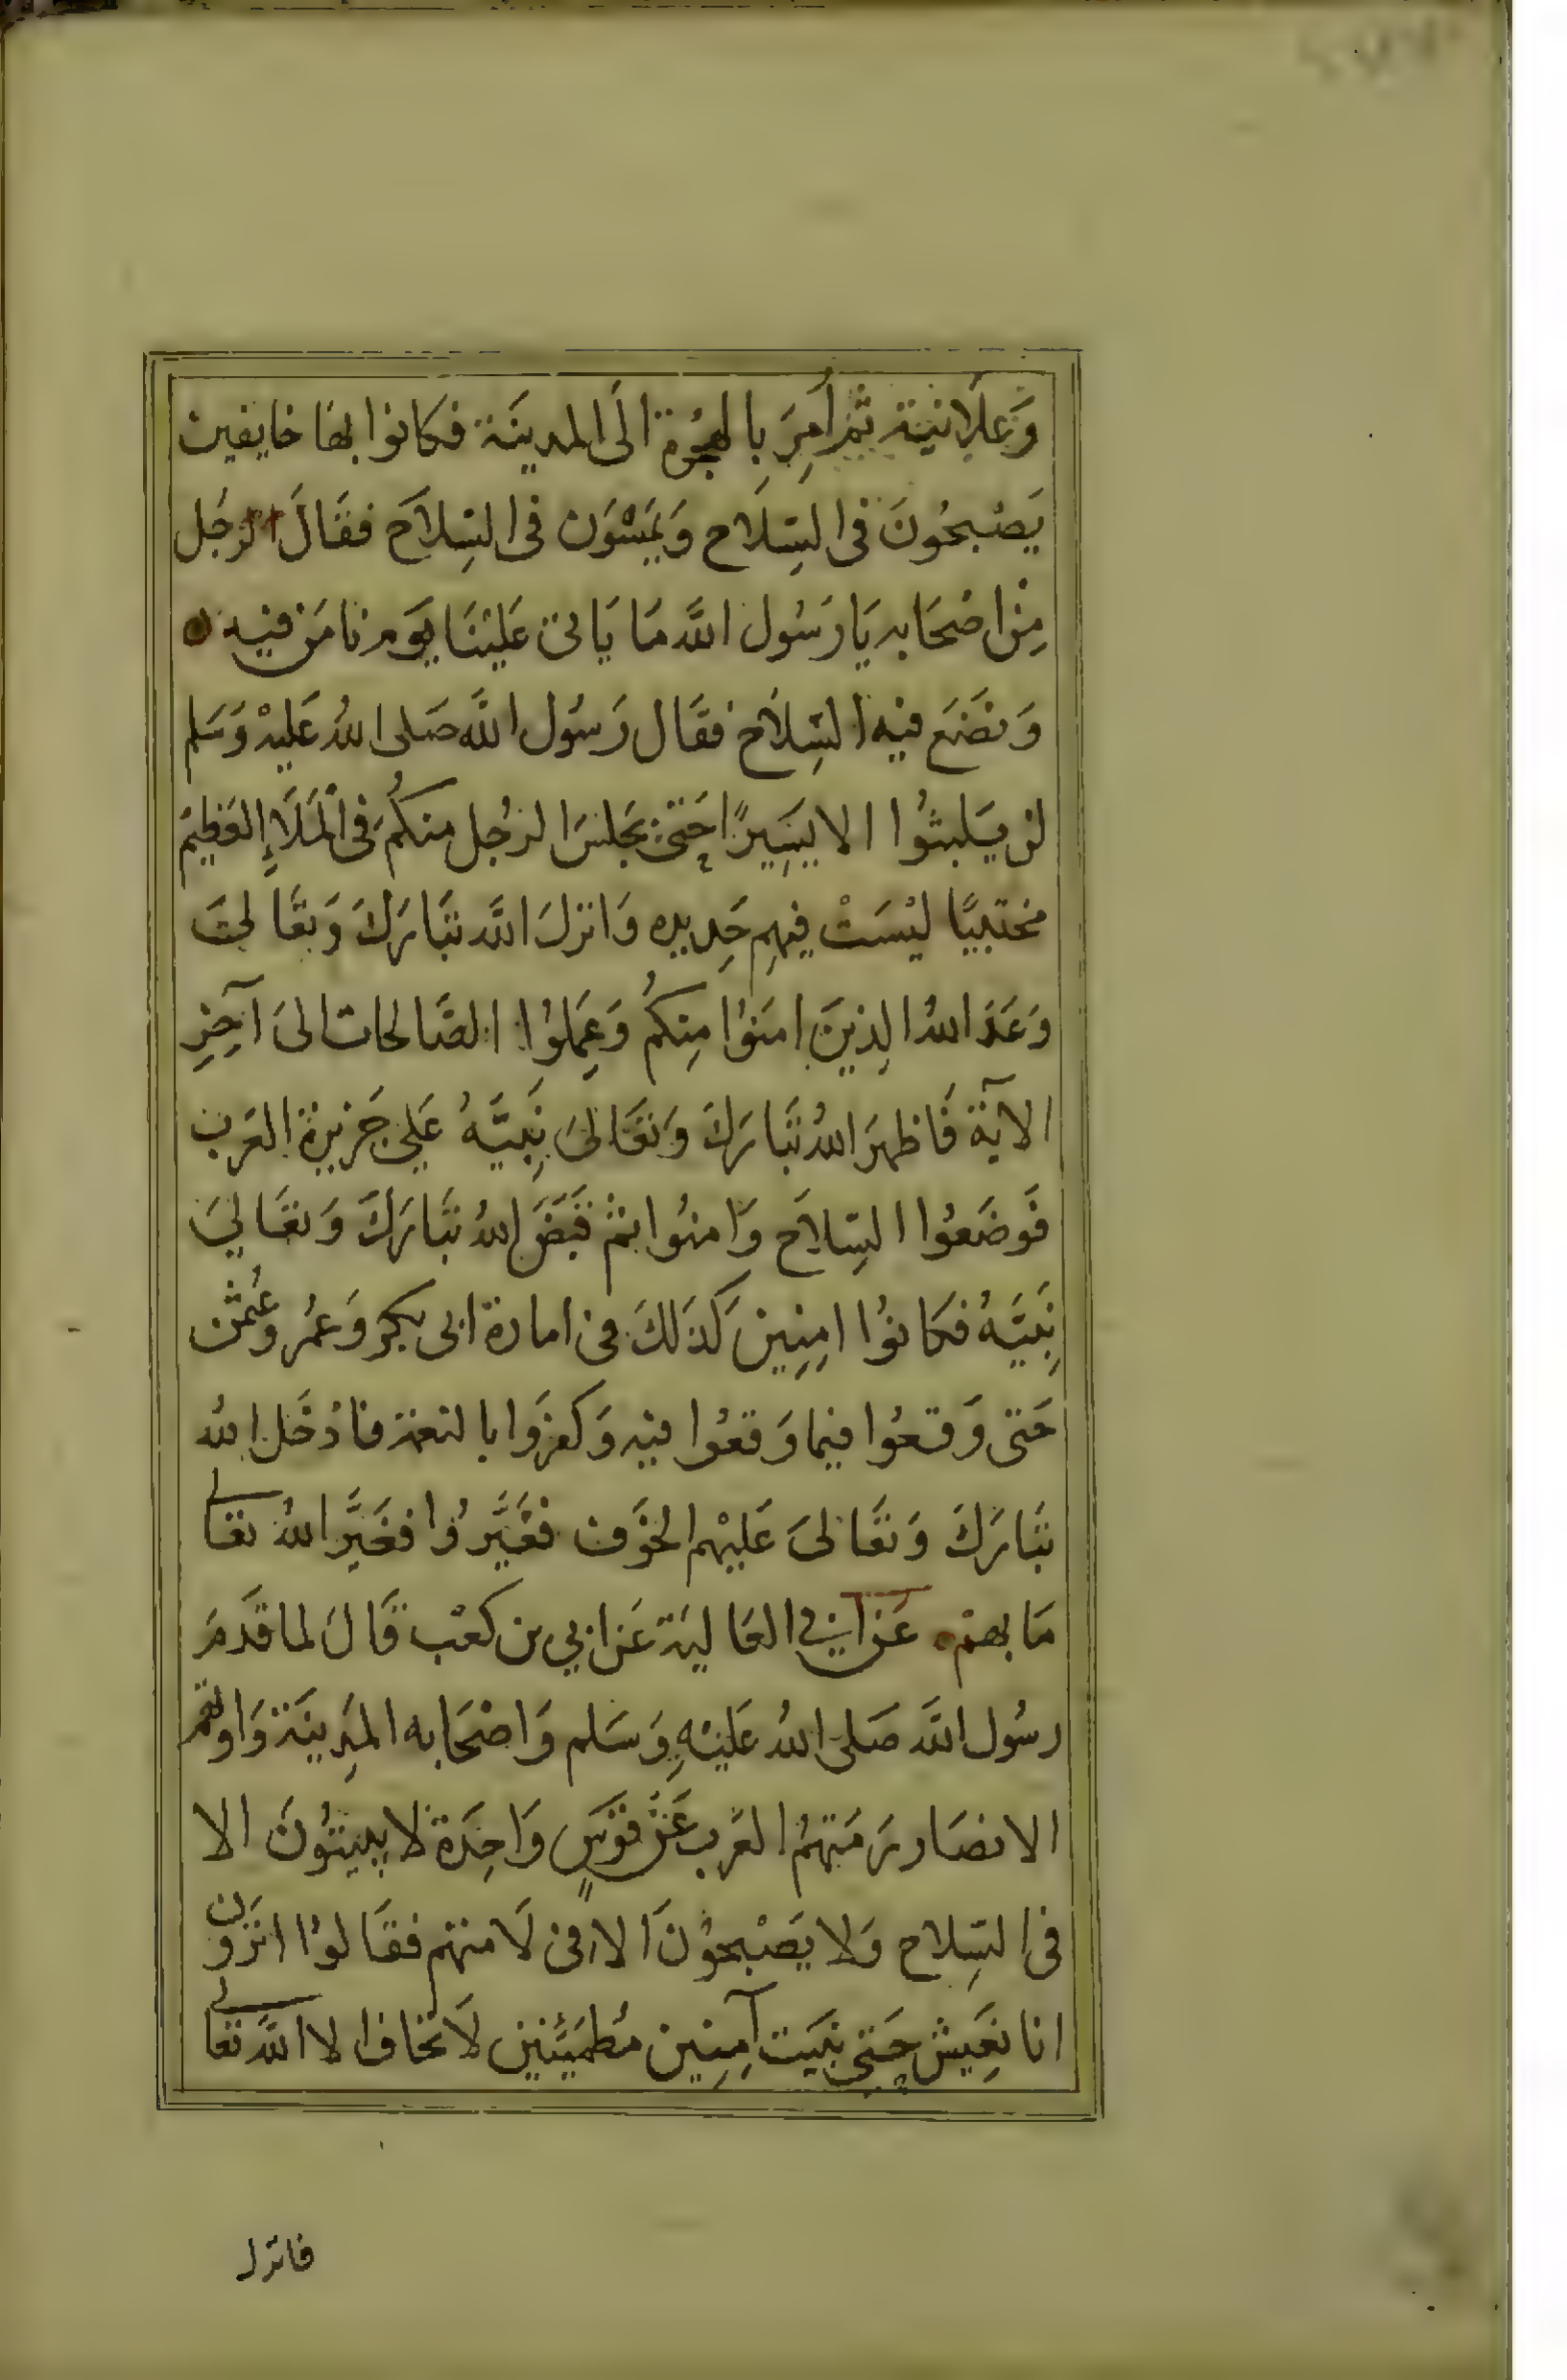 وَعَلَانِيَة ثمَّ اُمِرَ بِالهِجْرة الَى المدينَة فكانوا بهَا خايفين
يَصْبحُونَ فى السِّلَاح وَيمْسُوَن فى السِّلاَح فقَالَ الرَجُل
مِنْ اصْحَابه يَا رَسُول اللَّه مَا يَاتى عَليْنَا يَوم نامَن فيه
وَ نضَع فيه السِّلاَح فقَال رَسُول اللَّه صَلى اللهُ عَليْه وَسَلم
لن يَلبثُوا الا يسِيرًا حَتىٰ يَجلسَ الرجُل منكمُ فى الْمَلَاءِ العَظِيْم
مختبيًا ليْسَتْ فيهِم حَديده وَانزلَ اللَّه تبَارَكَ وَتعَالىَ
وَعَدَ اللهُ الذِينَ امَنوُا مِنكمُ وَعَمِلوُا الصَّالحات الىَ آخِرِ
الآية فَاظهَرَ اللهُ تبَارَكَ وَتعَالىَ نَبيَّهُ عَلي جَزيرة العَرب
فَوضَعُوا السِّلاَح وَامنوُا ثمْ قبَضَ اللهُ تبَارَكَ وَتعَاليَ
نَبيَّهُ فكانوُا امِنِين كَذلكَ فى امارة ابى بكر وَعمُر وعُثمٰن
حَتى وَقعُوا فيما وَقعُوا فيه وَكفرَوا بالنعمة فادْخَل الله
تبَارَكَ وَتعَالىَ عَليْهم الخوَف فغَيَّرُوا فغَيَّر اللهُ تعَالى
مَا بهمْ عَن ابي العَاليَة عَن ابي بن كعْب قَالَ لما قَدَمَ
رسُول اللَّه صَلى اللهُ عَليْهِ وَسَلم وَاصْحَابه المدِينَة وَاوتهم
الانصَار رَمَتهمُ العَرب عَنْ قوَسٍ وَاحِدَة لا يبيتُونَ الا
فى السِّلاح وَلا يَصْبحوُنَ الا فى لَامتهم فقَالوُا اترَون
انا نعَيش حَتى نبَيت آمِنِين مُطمَئِنين لَا نخاف الا اللَّه تعَالى
فانزل